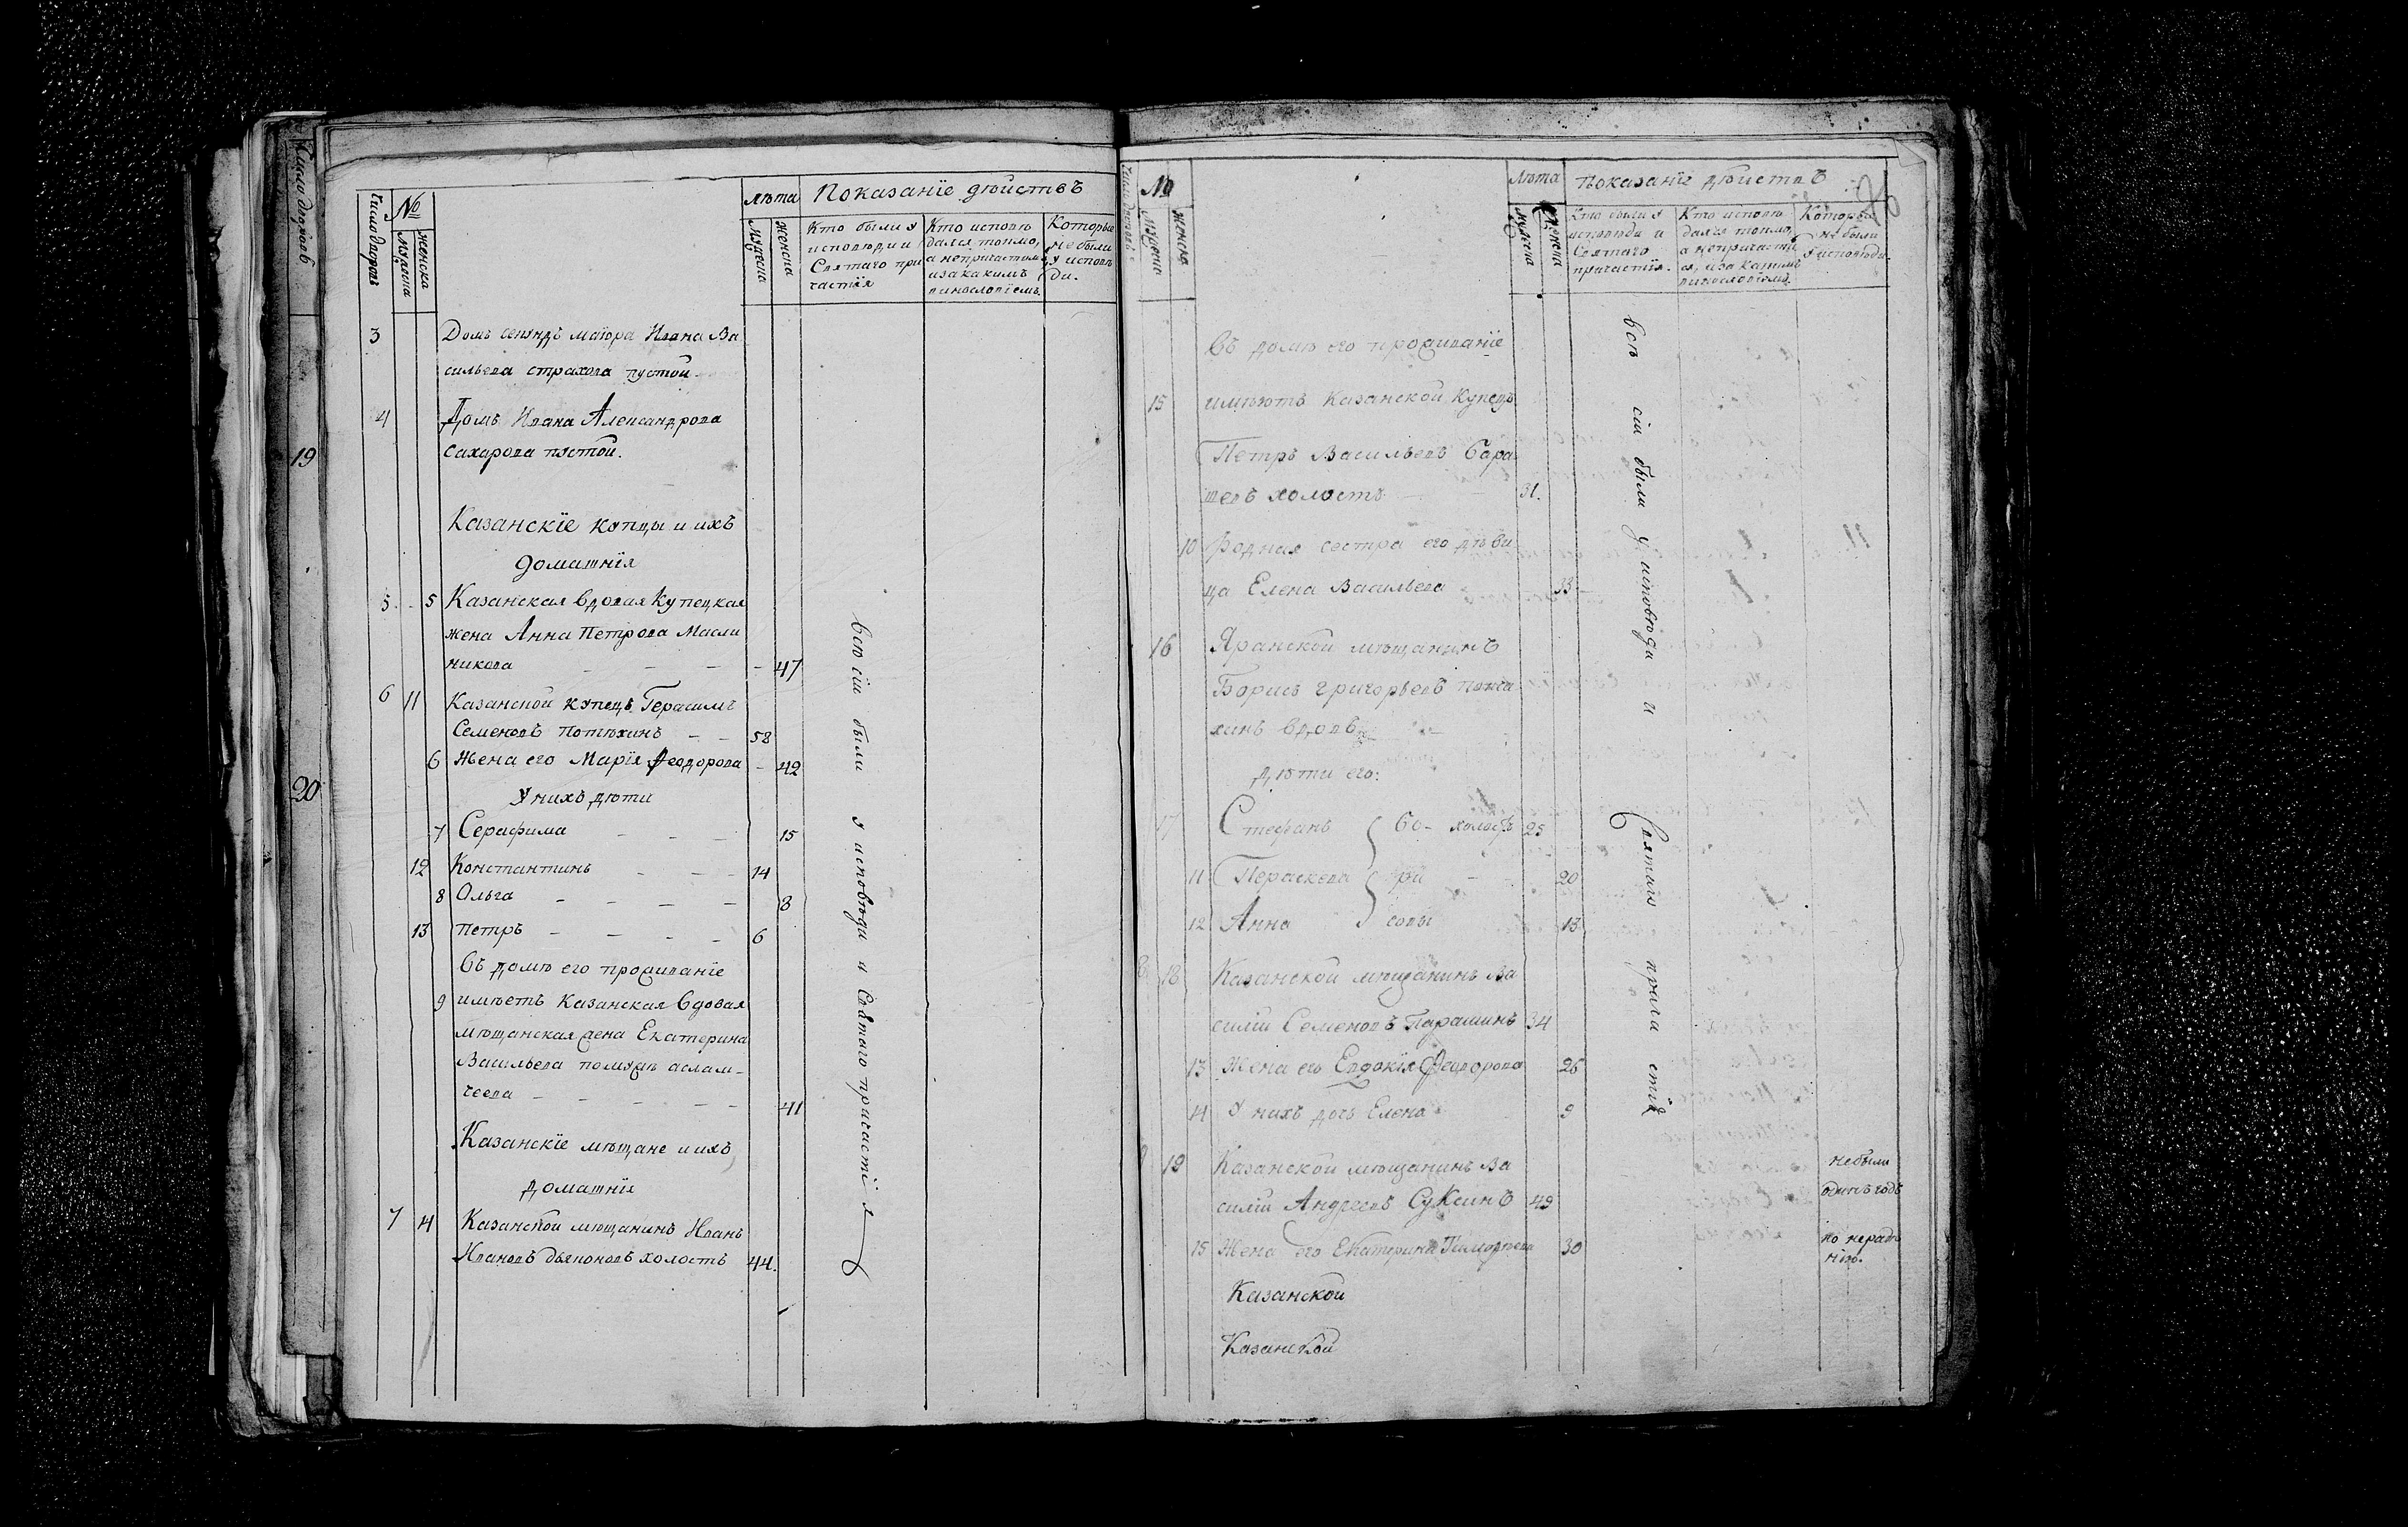 Число дворовъ
19
20
Число дворовъ
№
Мужеска
Женска
лѣта
Мужеска
Женска
Показанїе дѣйствъ
Кто были у
исповѣди и
Святаго при
частїя
Кто исповѣ
дался токмо,
а непричастился
иза какимъ
винословїемъ.
Которые
не были
у исповѣ
ди.
3
Домъ секундъ маіора Ивана Ва
сильева Страхова пустой
4
Домъ Ивана Александрова
Сахарова пустой.
Казанскїе купцы и ихъ
домашнїя
5 5 Казанская вдовая купецкая
жена Анна Петрова Масле
никова 47
6 11 Казанской купецъ Герасимъ
Семеновъ Потехинъ 58
6 Жена его Марїя Ѳеодорова 42
У нихъ дѣти
7 Серафима 15
12 Константинъ 14
8 Ольга 8
13 Петръ 6
въ домѣ его проживанїе
9 имѣетъ Казанская вдовая
мѣщанская жена Екатерина
Васильева
41
Казанскїе мѣщане и ихъ
домашнїя
7 14 Казанской мѣщанинъ Иванъ
Ивановъ Дьяконовъ холостъ 44.
всѣ сіи были у исповѣди и Святаго причастїя
№
Мужеска
Женска
лѣта
мужеска
женска
показанїе дѣйствъ
Кто были у
исповѣди и
Святаго
причастїя.
Кто исповѣ
дался токмо,
а непричастил
ся, иза какимъ
винословїемъ.
Которые
не были
у исповѣди.
въ домѣ его проживанїе
15 имѣютъ Казанской купецъ
Петръ Васильевъ
холостъ 31.
10 родная сестра его дѣви
ца Елена Васильева 33
16 Яранской мѣщанинъ
Борисъ Григорьевъ
вдовъ
дѣти его:
17 Стефанъ Бо- холостъ 25
11 Параскева ри 20
12 Анна совы 13
8 18 Казанской мѣщанинъ Ва
силій Семеновъ Парашинъ 34
13 Жена его Евдокїя Ѳеодорова 26
14 У нихъ дочь Елена 9
9 19 Казанской мѣщанинъ Ва
силій Андреевъ Суксинъ 49
15 Жена его Екатерина Тимофеева 30
Казанской
Казанской
всѣ сіи были у исповѣди и
Святаго прича стїя
не были
одинъ годъ
по нерадѣ
нїю.